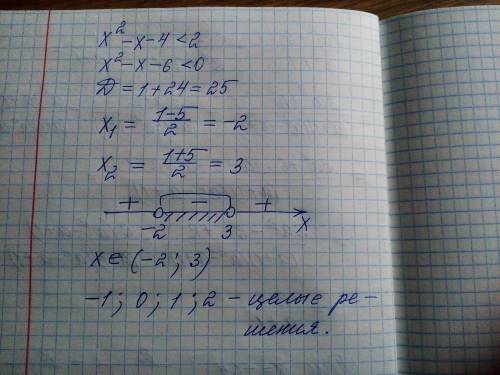 x² - x - 4 < 2
x² - x - 6 < 0
D = 1 + 24 = 25
x₁ = (1-5)/2 = -2
x₂ = (1+5)/2 = 3
+ - +
-2 3 x
x ∈ (-2; 3)
-1; 0; 1; 2 - целые ре-
шения.